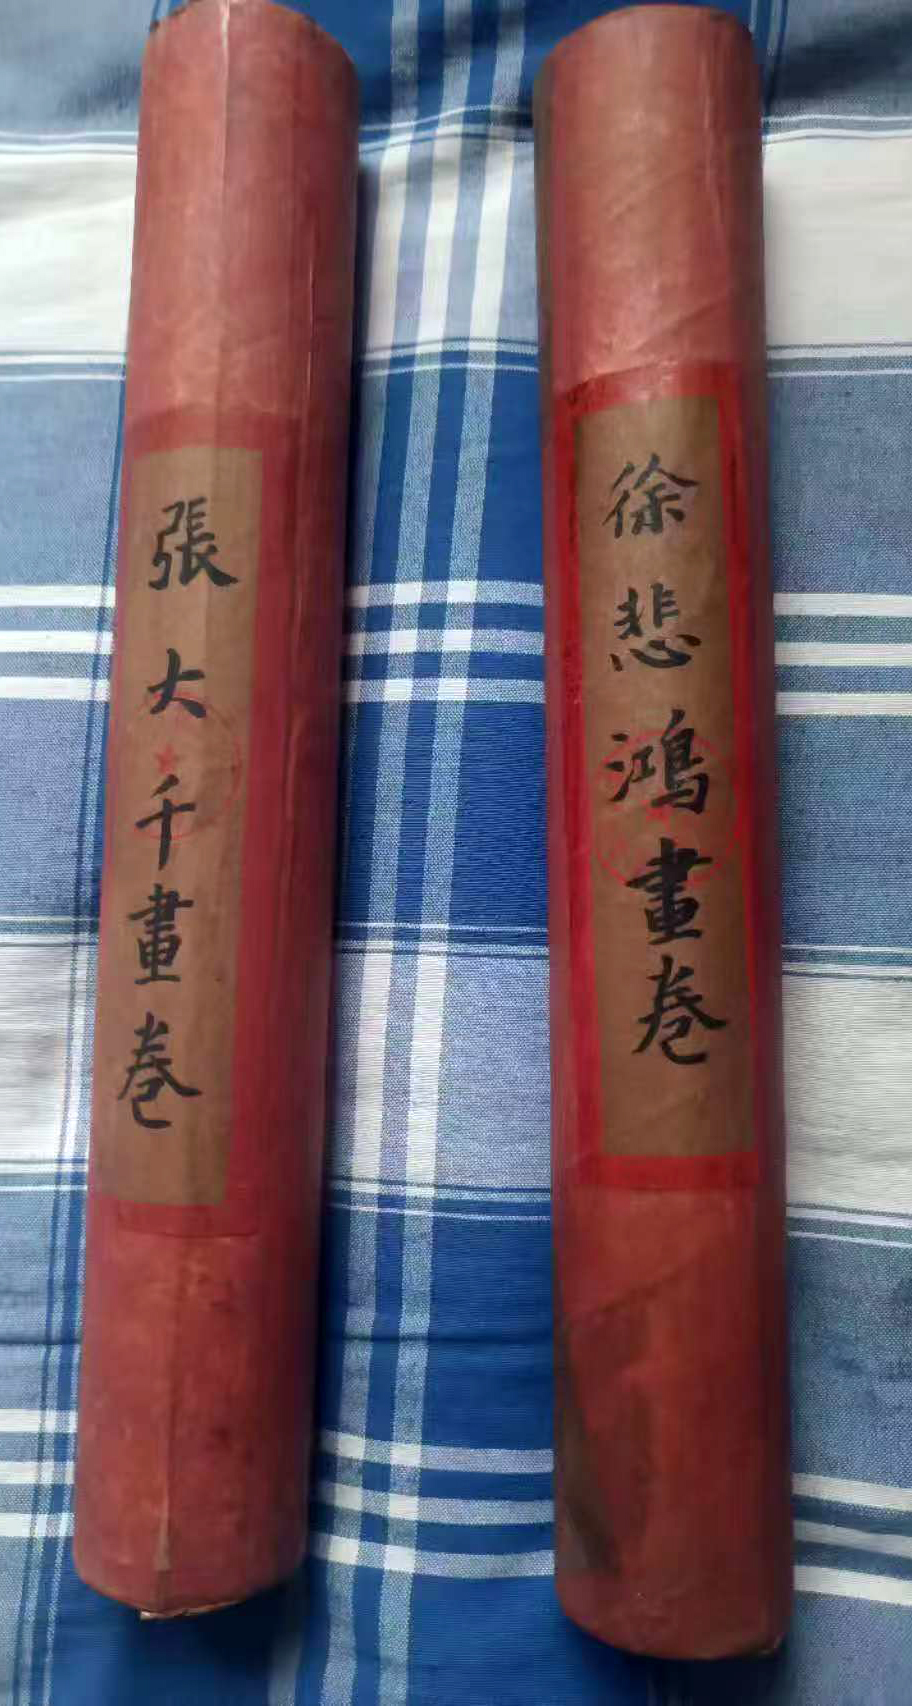 張大千畫卷
徐悲鴻畫卷